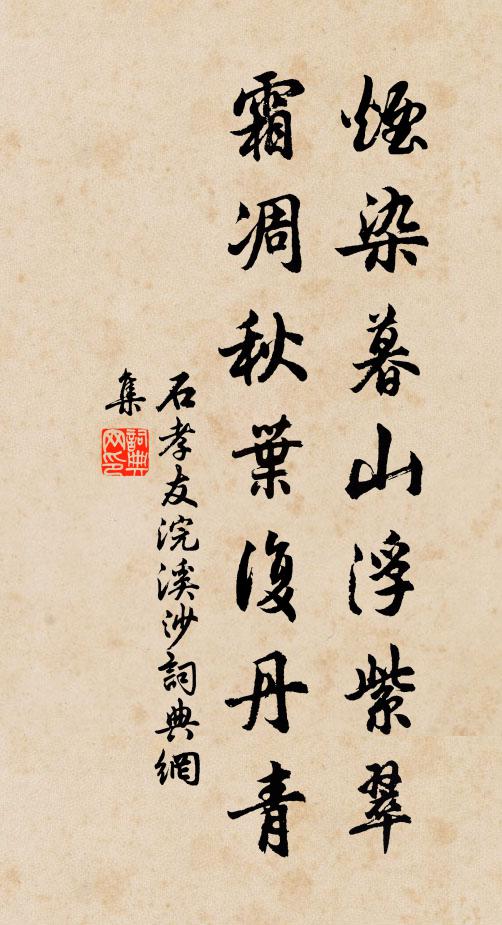 煙染暮山浮紫翠
霜凋秋葉復丹青
石孝友浣溪沙詞典網
集
詞典网印